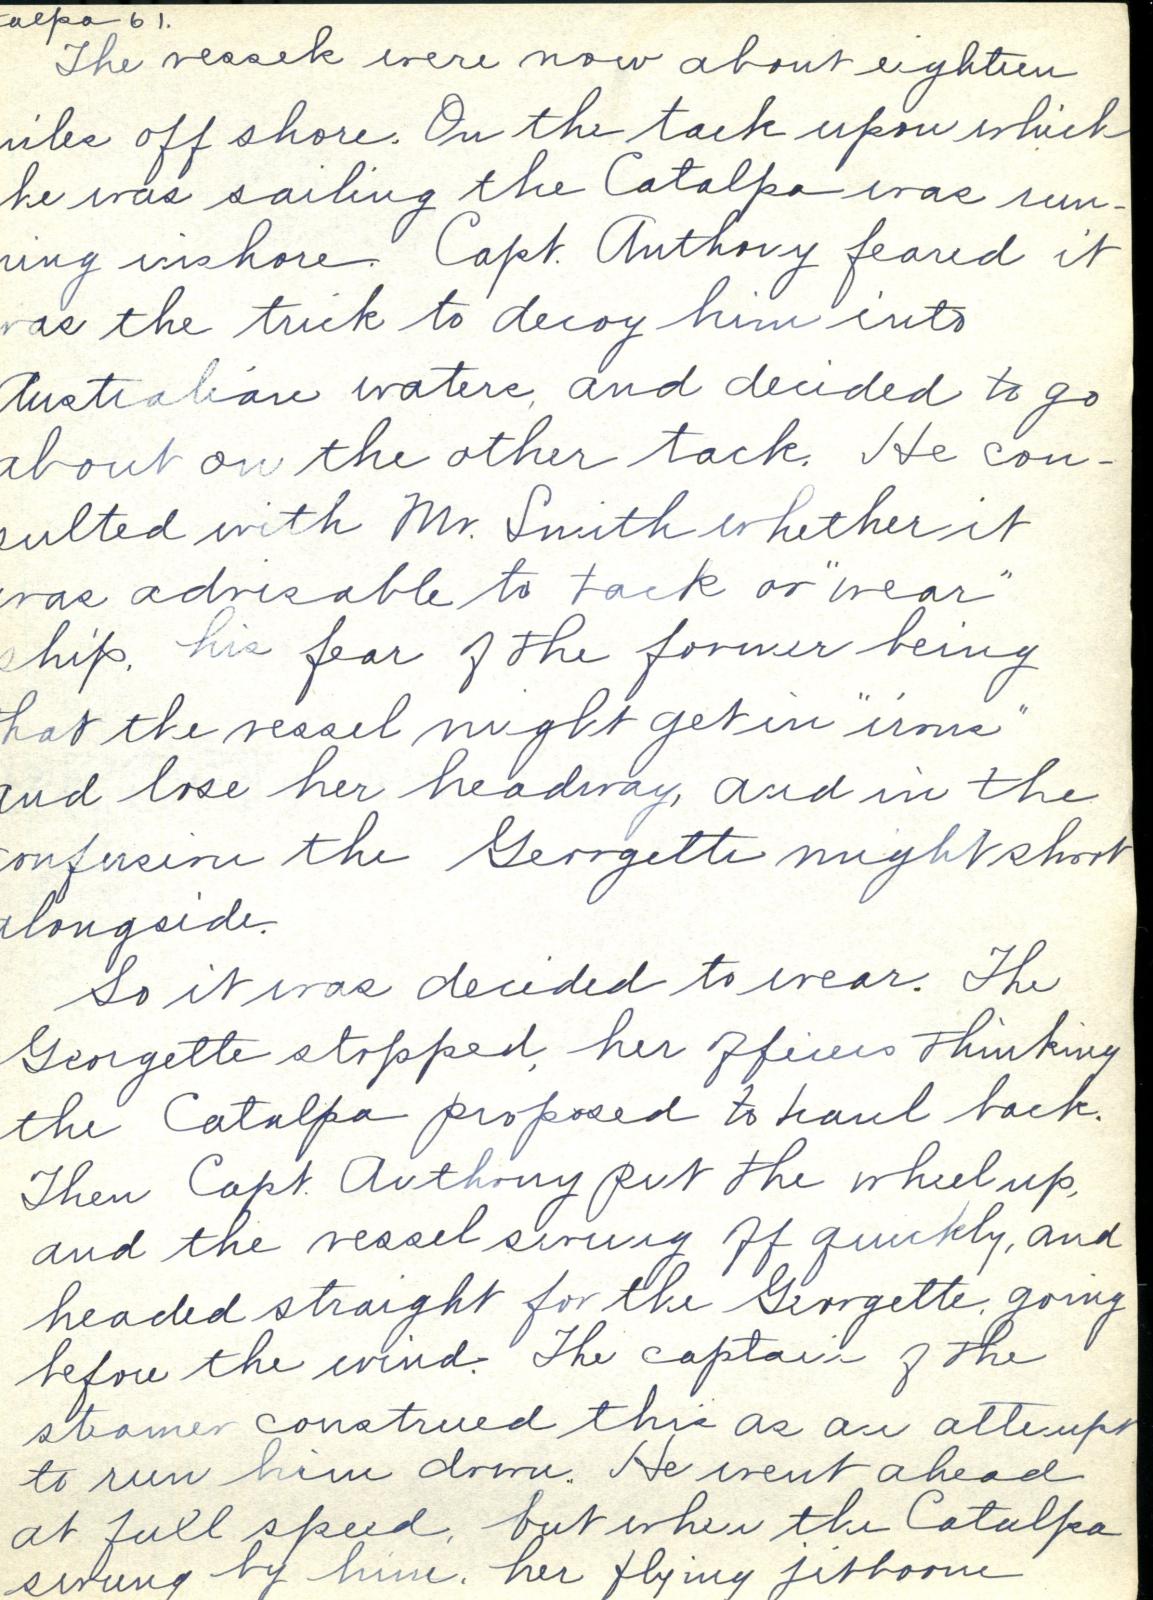 talpa 61.
The vessels were now about eighteen
miles off shore. On the tack upon which
he was sailing the Catalpa was run-
ning inshore. Capt. Anthony feared it
was the trick to decoy him into
Australian waters, and decided to go
about on the other tack. He con-
sulted with Mr. Smith whether it
was advisable to tack or "wear"
ship, his fear of the former being
that the vessel might get in "irons"
and lose her headway, and in the
confusion the Georgette might shoot
alongside.
So it was decided to wear. The
Georgette stopped, her officers thinking
the Catalpa proposed to haul back.
Then Capt. Anthony put the wheel up,
and the vessel swung off quickly, and
headed straight for the Georgette, going
before the wind. The captain of the
steamer construed this as an attempt
to run him down. He went ahead
at full speed, but when the Catalpa
swung by him, her flying jibboom